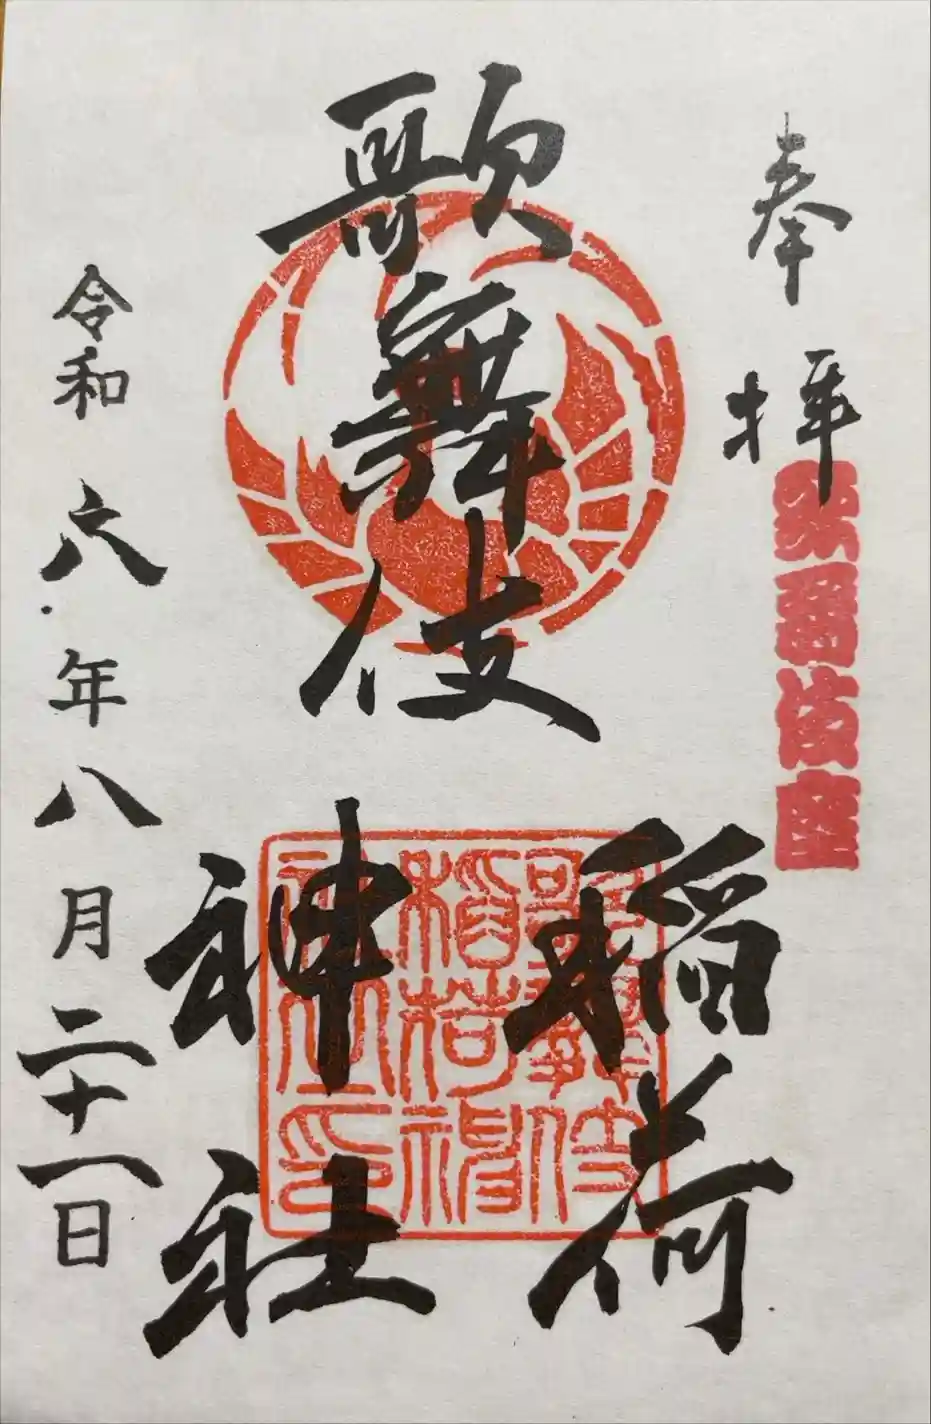 奉拝
歌舞伎座
歌舞伎
稲荷
神社
歌舞伎
稲荷神
社之印
令和六年八月二十一日